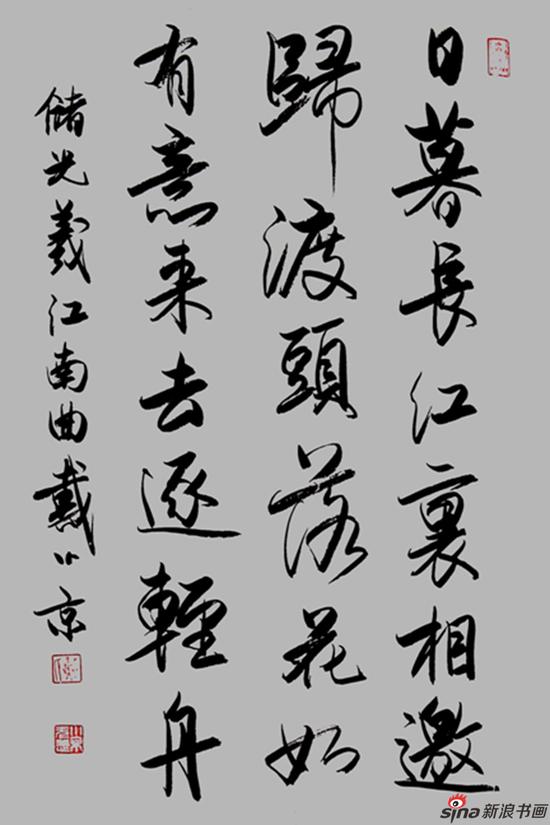 日暮長江裏相邀
歸渡頭落花如
有意来去逐輕舟
儲光羲江南曲戴小京
sina新浪书画